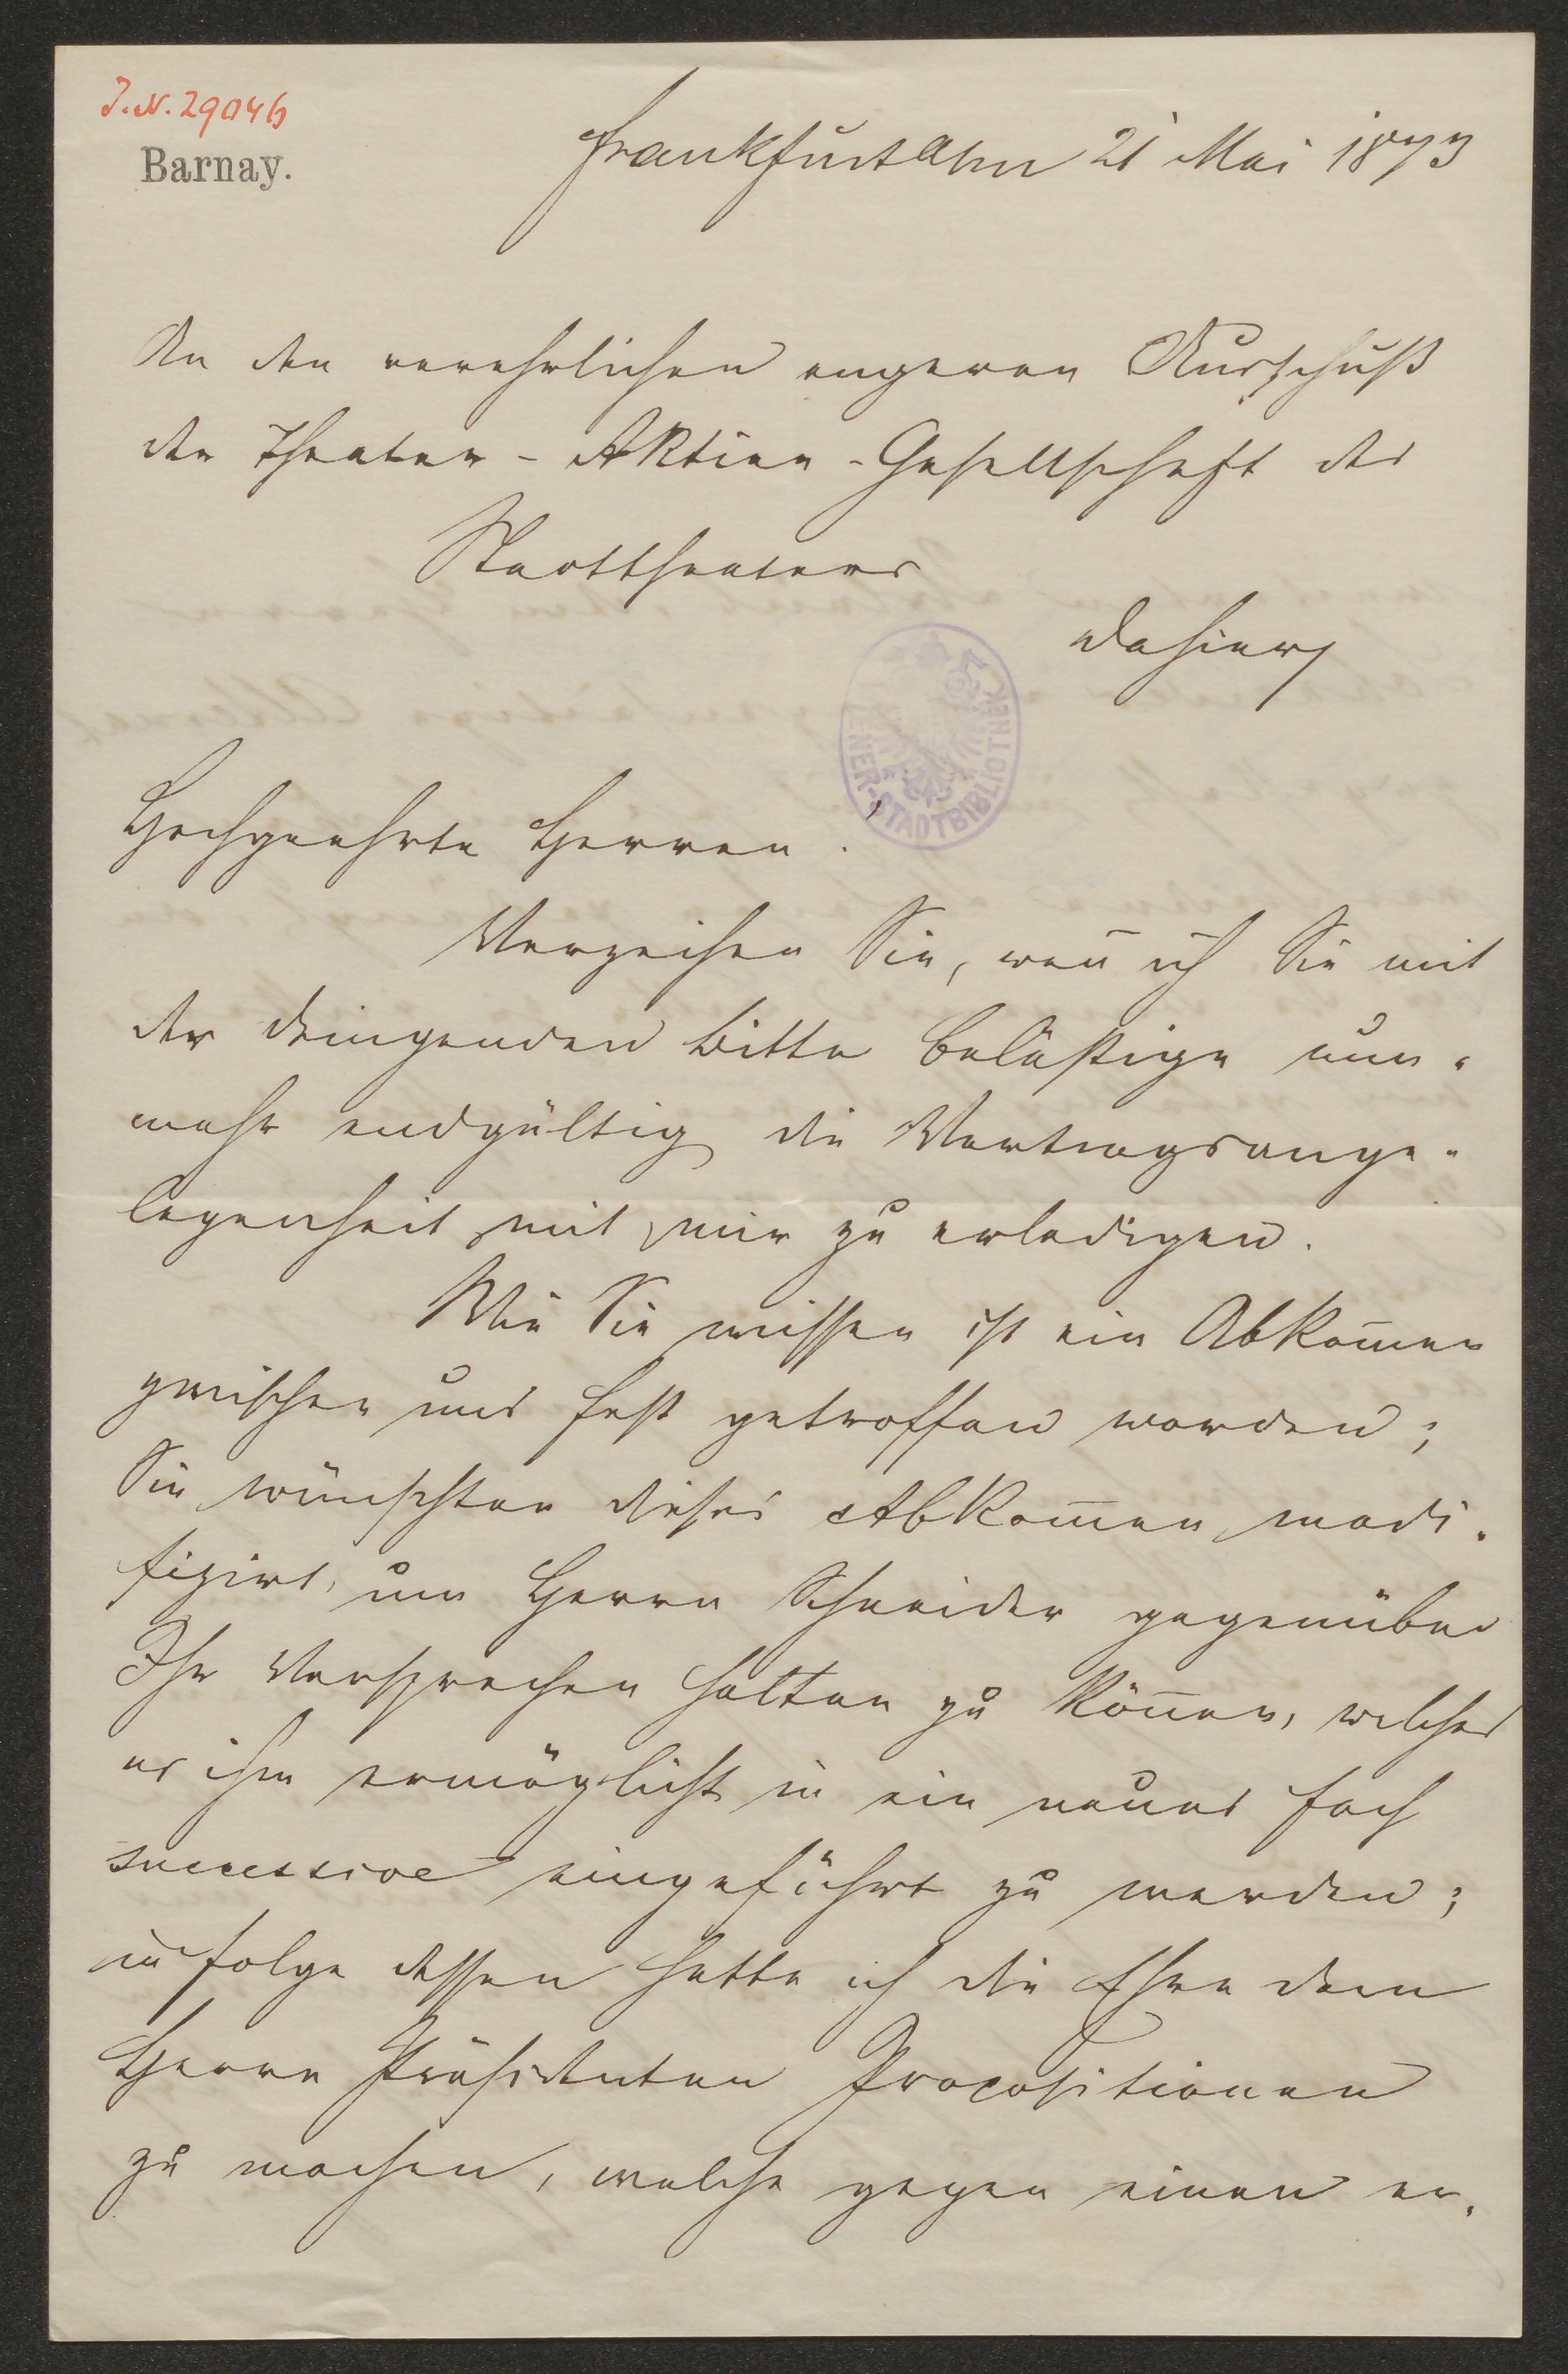 J.N. 29046
Barnay.
Frankfurt a/m 21 Mai 1873
An den verehrlichen engeren Ausschuß
der Theater-Aktien-Gesellschaft des
Stadttheaters
dahier
WIENER-STADTBIBLIOTHEK
Hochgeehrte Herren!
Verzeihen Sie, wen̄ ich Sie mit
der dringenden Bitte belästige nun-
mehr endgültig die Vertragsange-
legenheit mit mir zu erledigen.
Wie Sie wissen ist ein Abkom̄en
zwischen uns fest getroffen worden;
Sie wünschten dieses Abkom̄en modi-
fizirt, um Herrn Schneider gegenüber
Ihr Versprechen halten zu kön̄en, welches
es ihm ermöglicht in ein neues Fach
successive eingeführt zu werden;
in Folge dessen hatte ich die Ehre dem
Herrn Präsidenten Propositionen
zu machen, welche gegen einen er-